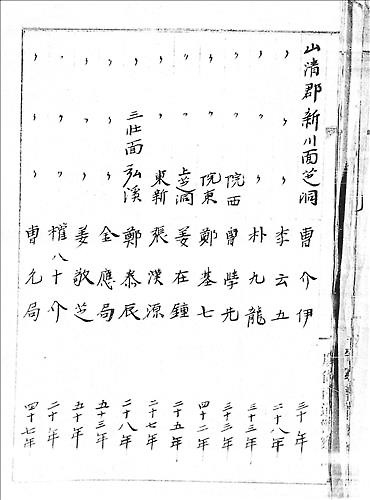 山淸郡新川面芝洞 曺介伊 三十年
〃 〃 〃 〃 李云五 二十八年
〃 〃 〃 〃 朴九龍 三十三年
〃 〃 院西 曺學先 三十三年
〃 〃 院東 鄭基七 四十二年
〃 〃 上芝洞 姜在鍾 二十五年
〃 〃 東新 張漢源 二十七年
〃 三壯面 弘溪 鄭泰辰 二十八年
〃 〃 〃 全應局 五十三年
〃 〃 〃 姜敬芝 五十年
〃 〃 〃 權八十介 二十年
〃 〃 〃 曺允局 四十七年